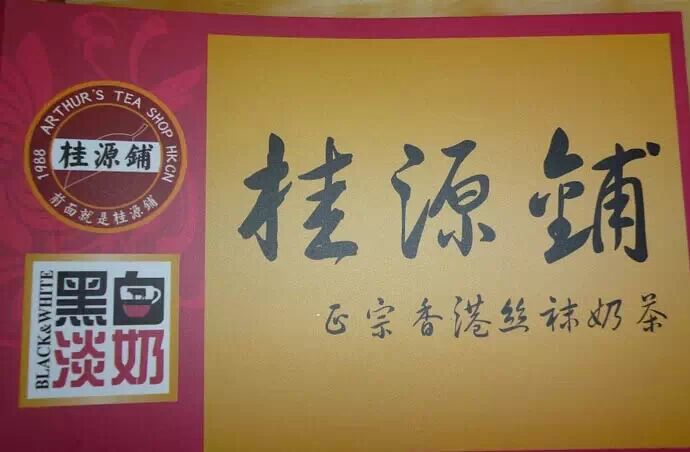 1988 ARTHUR'S TEA SHOP HKCN
桂源鋪
前面就是桂源鋪
BLACK&WHITE
黑白
淡奶
桂源鋪
正宗香港丝袜奶茶